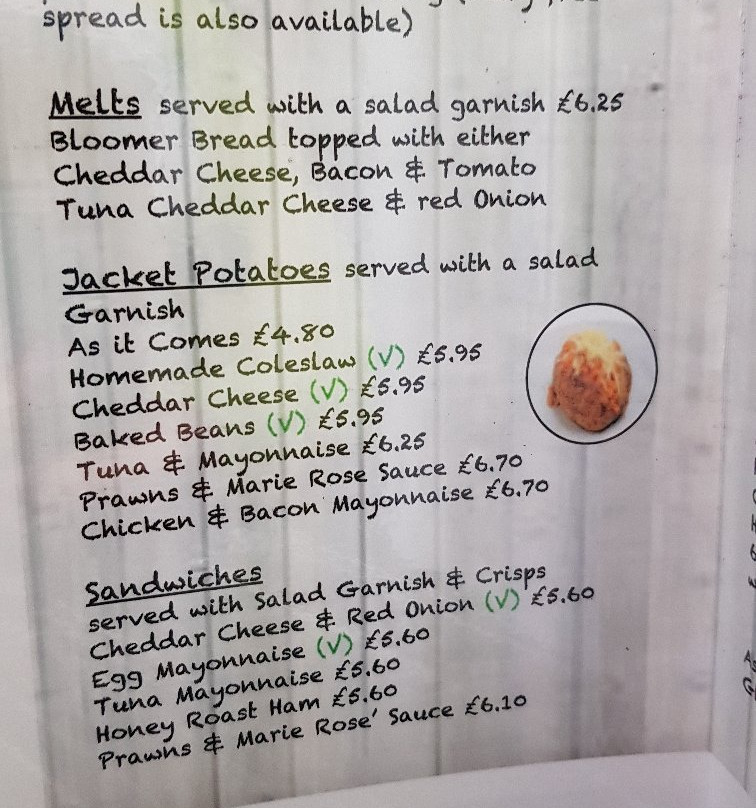 spread is also available)
Melts served with a salad garnish £6.25
Bloomer Bread topped with either
Cheddar Cheese, Bacon & Tomato
Tuna Cheddar Cheese & red Onion
Jacket Potatoes served with a salad
Garnish
As it Comes £4.80
Homemade Coleslaw (V) £5.95
Cheddar Cheese (V) £5.95
Baked Beans (V) £5.95
Tuna & Mayonnaise £6.25
Prawns & Marie Rose Sauce £6.70
Chicken & Bacon Mayonnaise £6.70
Sandwiches
served with Salad Garnish & Crisps
Cheddar Cheese & Red Onion (V) £5.60
Egg Mayonnaise (V) £5.60
Tuna Mayonnaise £5.60
Honey Roast Ham £5.60
Prawns & Marie Rose' Sauce £6.10